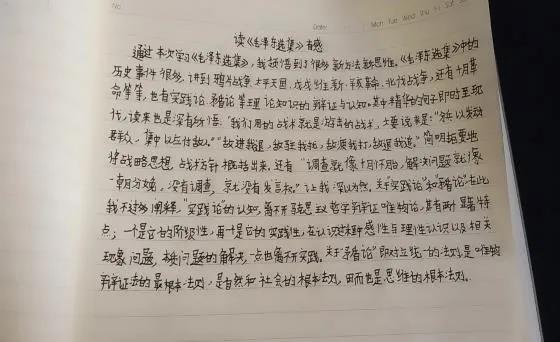 No.
Date
Mon Tue Wed Thu Fri Sat
读《毛泽东选集》有感
通过本次学习《毛泽东选集》,我领悟到了很多新方法新思维。《毛泽东选集》中的
历史事件很多,讲到鸦片战争、太平天国、戊戌维新、辛亥革命、北伐战争,还有十月革
命等等,也有实践论、矛盾论等理论知识的辩证与认知。其中精华的句子即时至现
代,读来也是深有所悟。"我们用的战术就是游击的战术,大要说来是:"分兵以发动
群众,集中以应付敌人。""敌进我退,敌驻我扰,敌疲我打,敌退我追。"简明扼要地
将战略思想,战术方针概括出来。还有"调查就像十月怀胎,解决问题就像
一朝分娩,没有调查,就没有发言权。"让我深以为然。关于"实践论"和"矛盾论"在此
我不过多阐释。"实践论"的认知,离不开马克思主义哲学辩证唯物论,其有两个显著特
点:一个是它的阶级性,再一个是它的实践性,在认识过程中感性与理性认识以及相关
现象问题,本质问题的解决,一点也离不开实践。关于"矛盾论"即对立统一的法则,是唯物
辩证法的最根本法则,是自然和社会的根本法则,因而也是思维的根本法则。